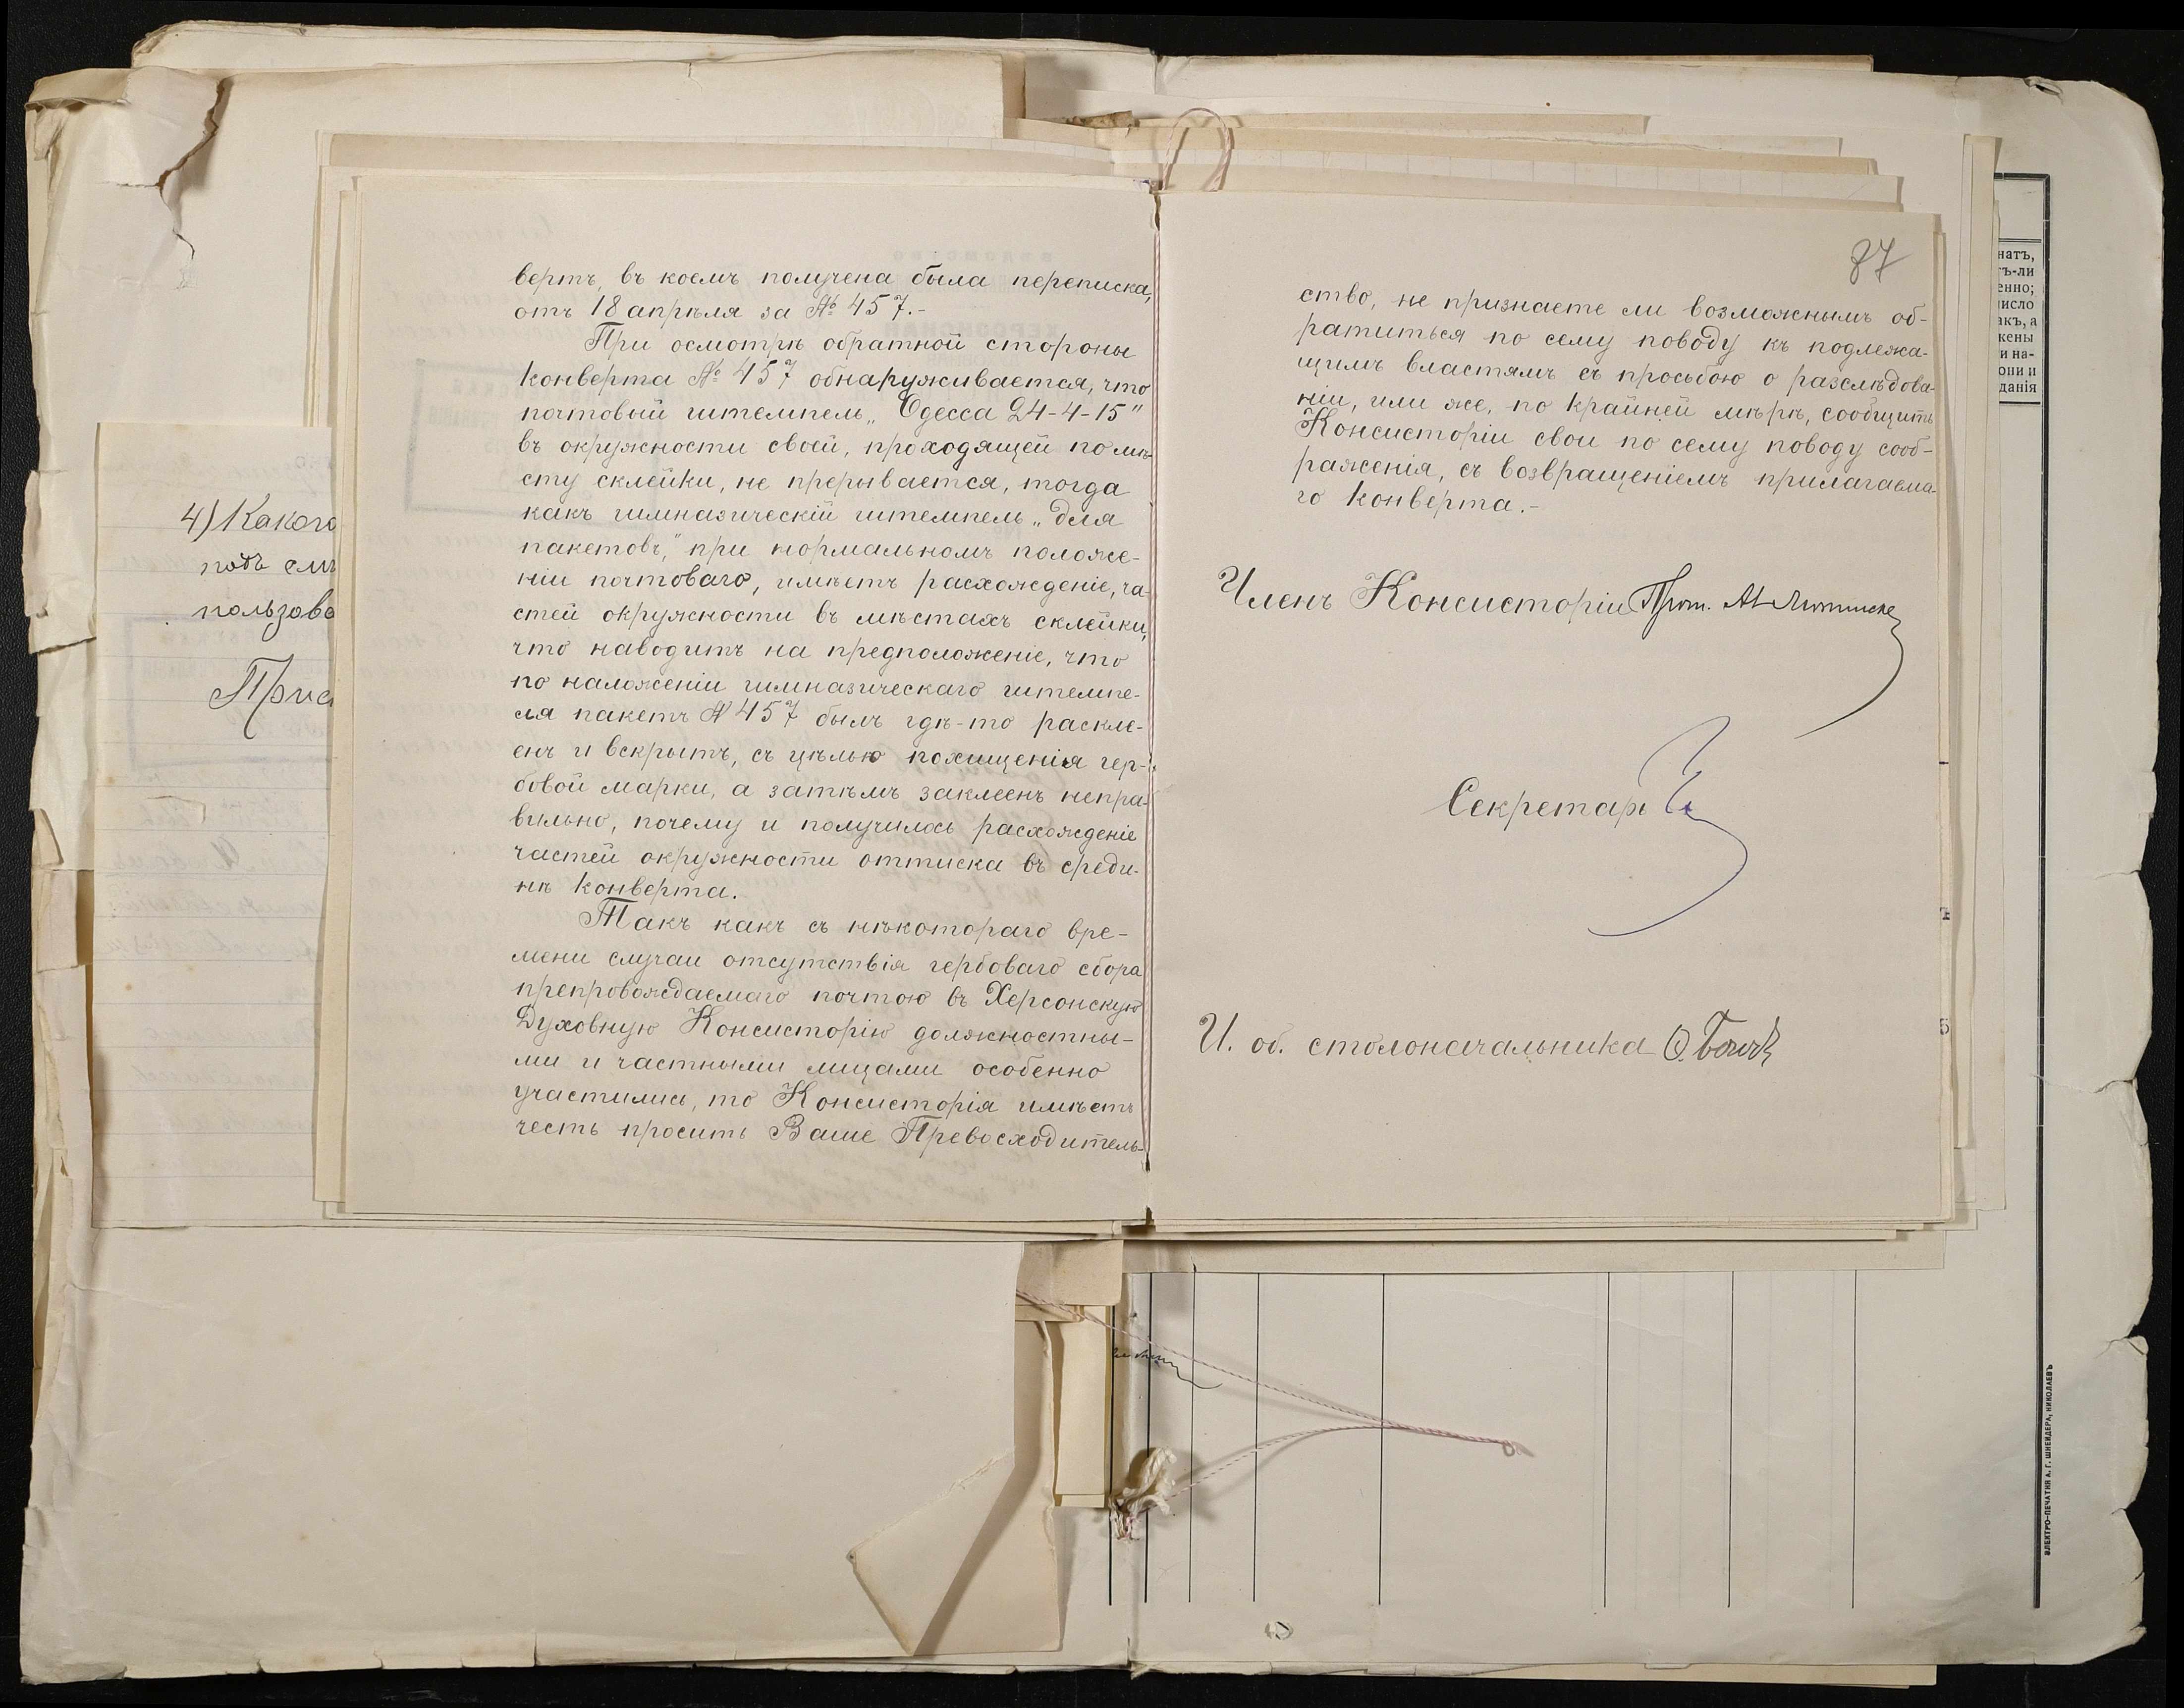 вертъ, въ коемъ получена была переписка,
отъ 18 апрѣля за № 457.-
При осмотрѣ обратной стороны
конверта № 457 обнаруживается, что
почтовый штемпель „Одесса 24-4-15"
въ окружности своей, проходящей по мѣ-
сту склейки, не прерывается, тогда
какъ гимназическій штемпель „для
пакетовъ," при нормальномъ положе-
ніи почтоваго, имѣетъ расхожденіе, ча-
стей окружности въ мѣстахъ склейки,
что наводитъ на предположеніе, что
по наложеніи гимназическаго штемпе-
ля пакетъ № 457 былъ гдѣ-то раскле-
енъ и вскрытъ, съ цѣлью похищенія гер-
бовой марки, а затѣмъ заклеенъ непра-
вильно, почему и получилось расхожденіе
частей окружности оттиска въ среди-
нѣ конверта.
Такъ какъ съ нѣкотораго вре-
мени случаи отсутствія гербоваго сбора
препровождаемаго почтою въ Херсонскую
Духовную Консисторію должностны-
ми и частными лицами особенно
участились, то Консисторія имѣетъ
честь просить Ваше Превосходитель-
87
ство, не признаете ли возможнымъ об-
ратиться по сему поводу къ подлежа-
щимъ властямъ съ просьбою о разслѣдова-
ніи, или же, по крайней мѣрѣ, сообщить
Консисторіи свои по сему поводу сооб-
раженія, съ возвращеніемъ прилагаема-
го конверта.-
Членъ Консисторіи Прот.
Секретарь
И. об. столоначальника
4) Какого
подъ
пользова
натъ,
ъ-ли
енно;
исло
акъ, а
жены
и на-
они и
данія
ЭЛЕКТРО-ПЕЧАТНЯ А. Г. ШНЕЙДЕРА, НИКОЛАЕВЪ